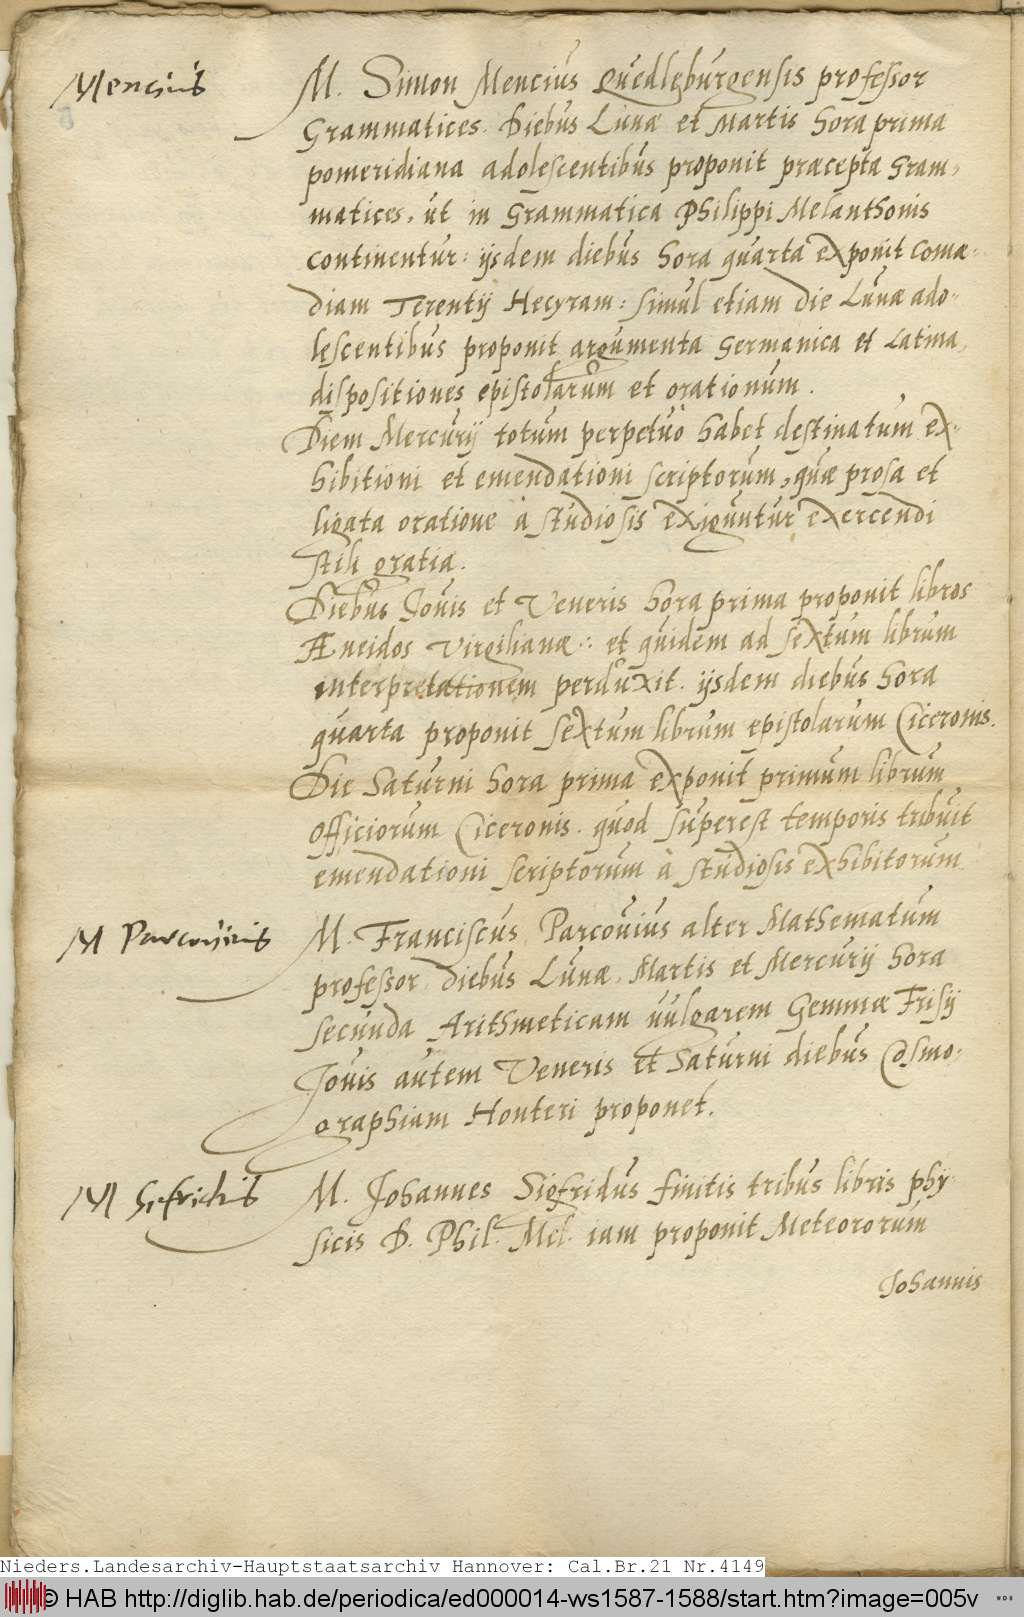 Mencius
M. Simon Mencius Quedlgburgensis professor
Grammatices. Diebus Lunæ et Martis hora prima
pomeridiana adolescentibus proponit præcepta Gram,
matices, ut in Grammatica Philippi Melanthonis
continentur: ijsdem diebus hora quarta exponit comæ-
diam Terentij Hecyram: simul etiam die Lunæ ado-
lescentibus proponit argumenta Germanica et Latina,
dispositiones epistolarum et orationum.
Diem Mercurij totum perpetuò habet destinatum ex-
hibitioni et emendationi scriptorum, quæ prosa et
ligata oratione à studiosis exiguntur exercendi
stili gratia.
Diebus Jouis et Veneris hora prima proponit libros
Æneidos Virgilianæ: et quidem ad sextum librum
interpretationem perduxit. ijsdem diebus hora
quarta proponit sextum librum epistolarum Ciceronis.
Die Saturni hora prima exponit primum librum
Officiorum Ciceronis. quod superest temporis tribuit
emendationi scriptorum à studiosis exhibitorum.
M Parcovius
M. Franciscus Parcouius alter Mathematum
professor diebus Lunæ, Martis et Mercurij hora
secunda Arithmeticam uulgarem Gemmæ Frisij
Jouis autem Veneris et Saturni diebus Cosmo,
graphiam Honteri proponet.
M Sifridus
M. Johannes Sigfridus finitis tribus libris phy
sicis D. Phil. Mel. iam proponit Meteororum
Johannis
Nieders.Landesarchiv-Hauptstaatsarchiv Hannover: Cal.Br.21 Nr.4149
© HAB http://diglib.hab.de/periodica/ed000014-ws1587-1588/start.htm?image=005v